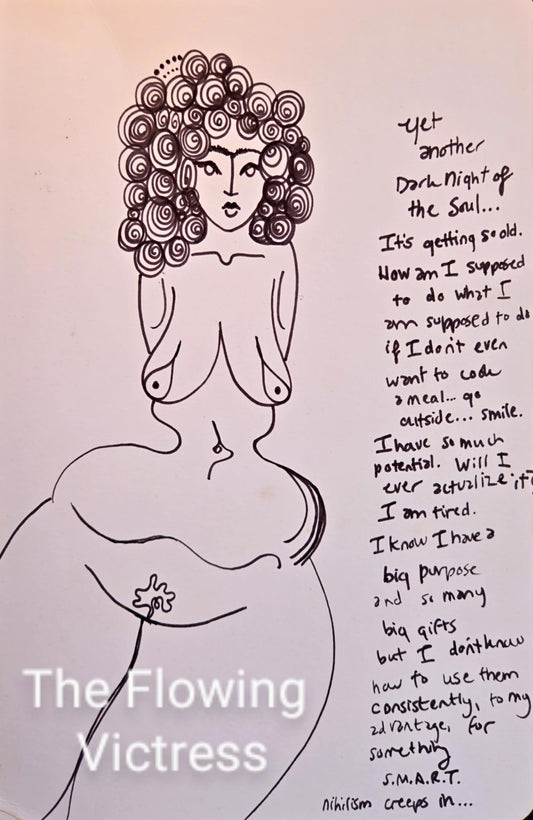 Yet
another
Dark Night of
the Soul...
It's getting so old.
How am I supposed
to do what I
am supposed to do
if I don't even
want to cook
a meal... go
outside... smile.
I have so much
potential. Will I
ever actualize it?
I am tired.
I know I have a
big purpose
and so many
big gifts
but I don't know
how to use them
consistently, to my
advantage, for
something
S.M.A.R.T.
nihilism creeps in...
The Flowing
Victress